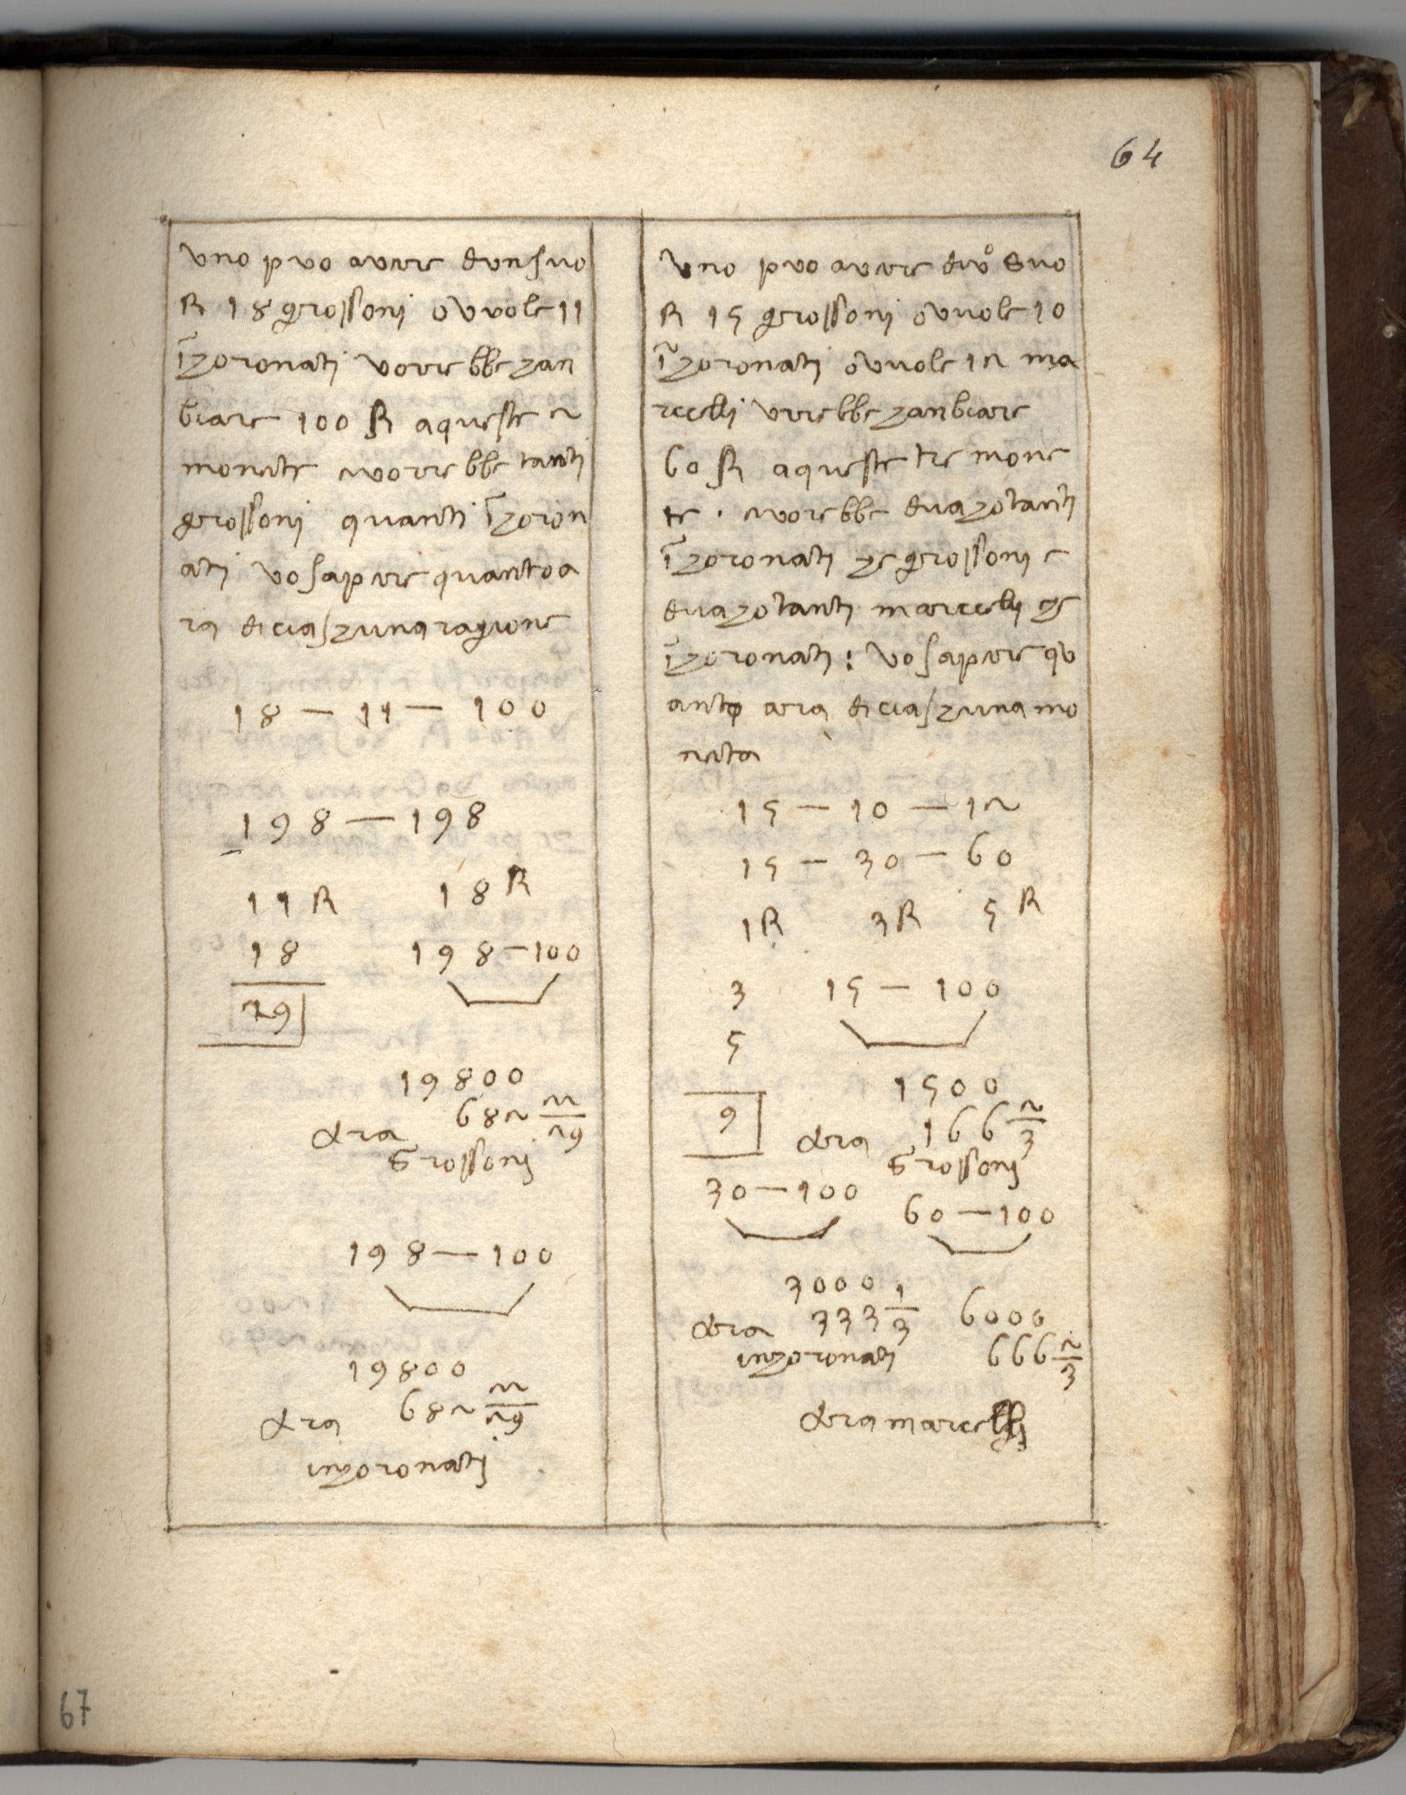 64
uno puo avere dunsuo
R 18 grossoni o vuole 11
īzoronati vorrebbe zan
biare 100 R a queste 2
monete e vorrebbe tanti
grossoni quanti īzoron
ati vo sapere quanto a
ra di ciaszuna ragione
18 — 11 — 100
198 — 198
11 R 18 R
18 198 — 100
29
19800
Ara 682 22/29
Grossoni
198 — 100
19800
Ara 682 22/29
inzoronati
uno puo avere duo Suo
R 15 grossoni o vuole 10
īzoronati o vuole 12 ma
rcelli vrebbe zanbiare
60 R a queste tre mone
te . e vorebbe dua zotanti
īzoronati ze grossoni e
dua zotanti marcelli ze
īzoronati : vo sapere qu
anto ara di ciaszuna mo
neta
15 — 10 — 12
15 — 30 — 60
1R 3R 5R
3 15 — 100
5
1500
9 Ara 166 2/3
Grossoni
30 — 100
60 — 100
3000
Ara 333 1/3 6000
inzoronati 666 2/3
Ara marcelli
67